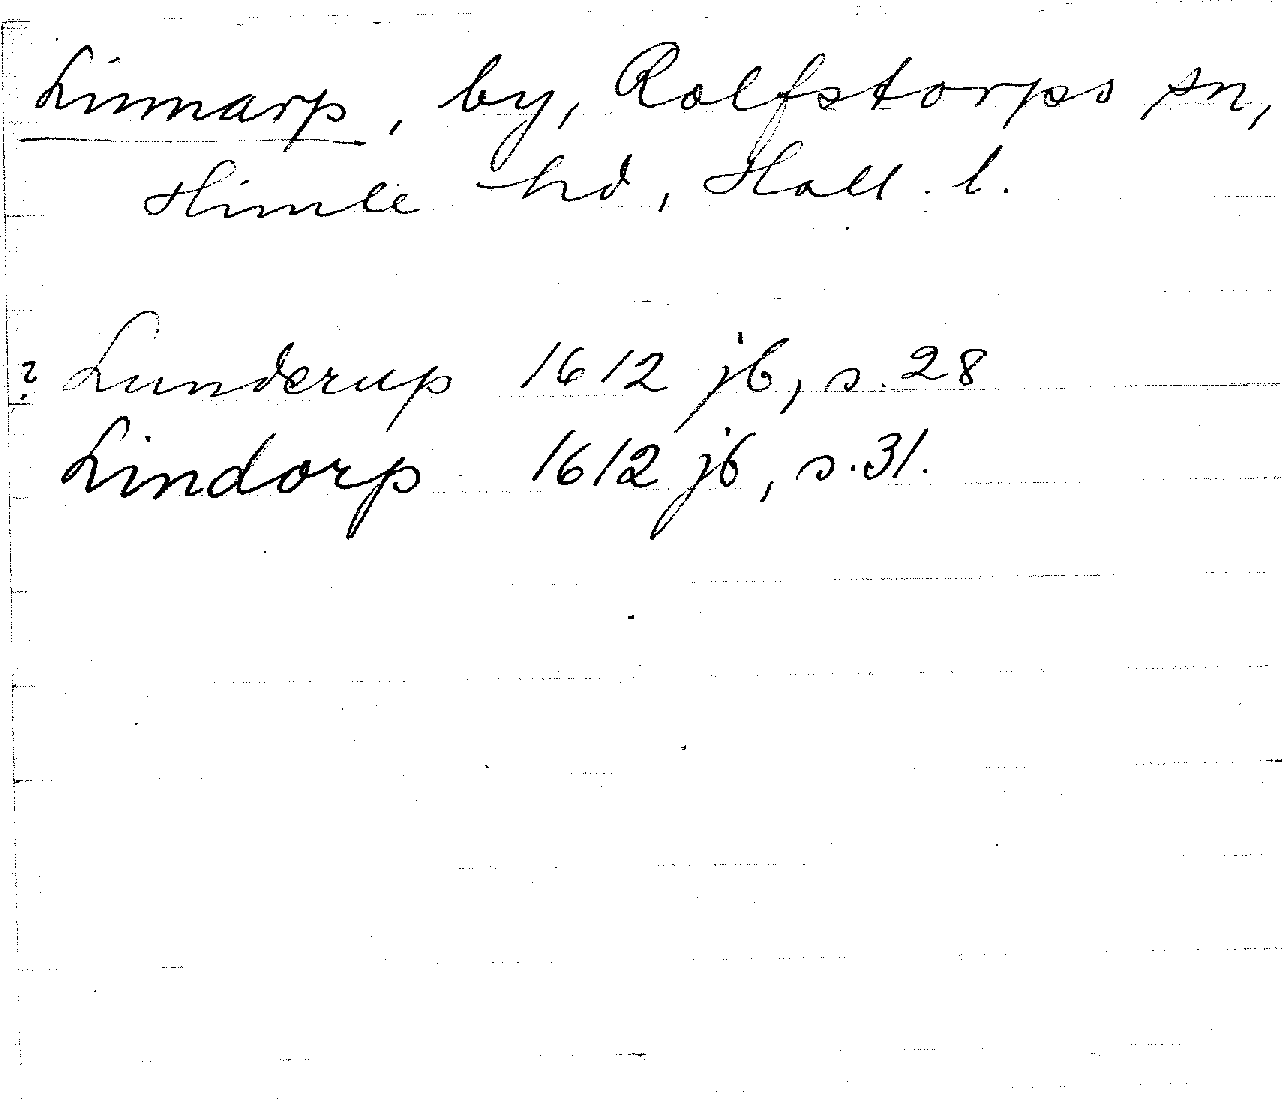 Linnarp, by, Rolfstorps sn,
Himle hd, Hall. l.
? Lunderup 1612 jb, s. 28
Lindorp 1612 jb, s. 31.